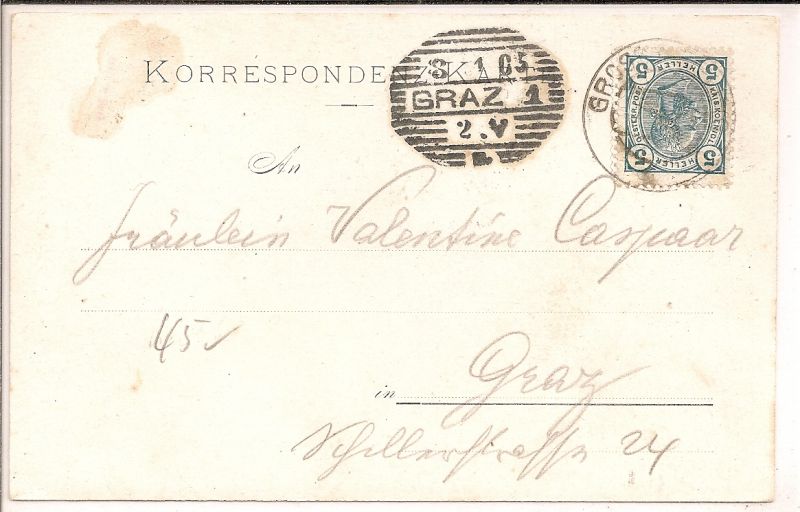 KORRESPONDENZ-KARTE
8 1 05
GRAZ 1
2. V
GROS
5 HELLER 5
5 HELLER 5
An
Fräulein Valentine Caspaar
45
in Graz
Schillerstrasse 24